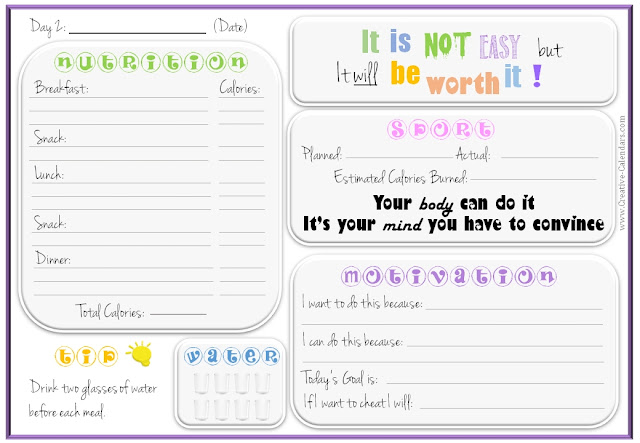 Day 2: (Date)
NUTRITION
Breakfast: Calories:
Snack:
Lunch:
Snack:
Dinner:
Total Calories:
tip
Drink two glasses of water
before each meal.
WATER
It is NOT EASY but
It will be worth it !
SPORT
Planned: Actual:
Estimated Calories Burned:
Your body can do it
It's your mind you have to convince
MOTIVATION
I want to do this because:
I can do this because:
Today's Goal is:
If I want to cheat I will:
www.Creative-Calendars.com